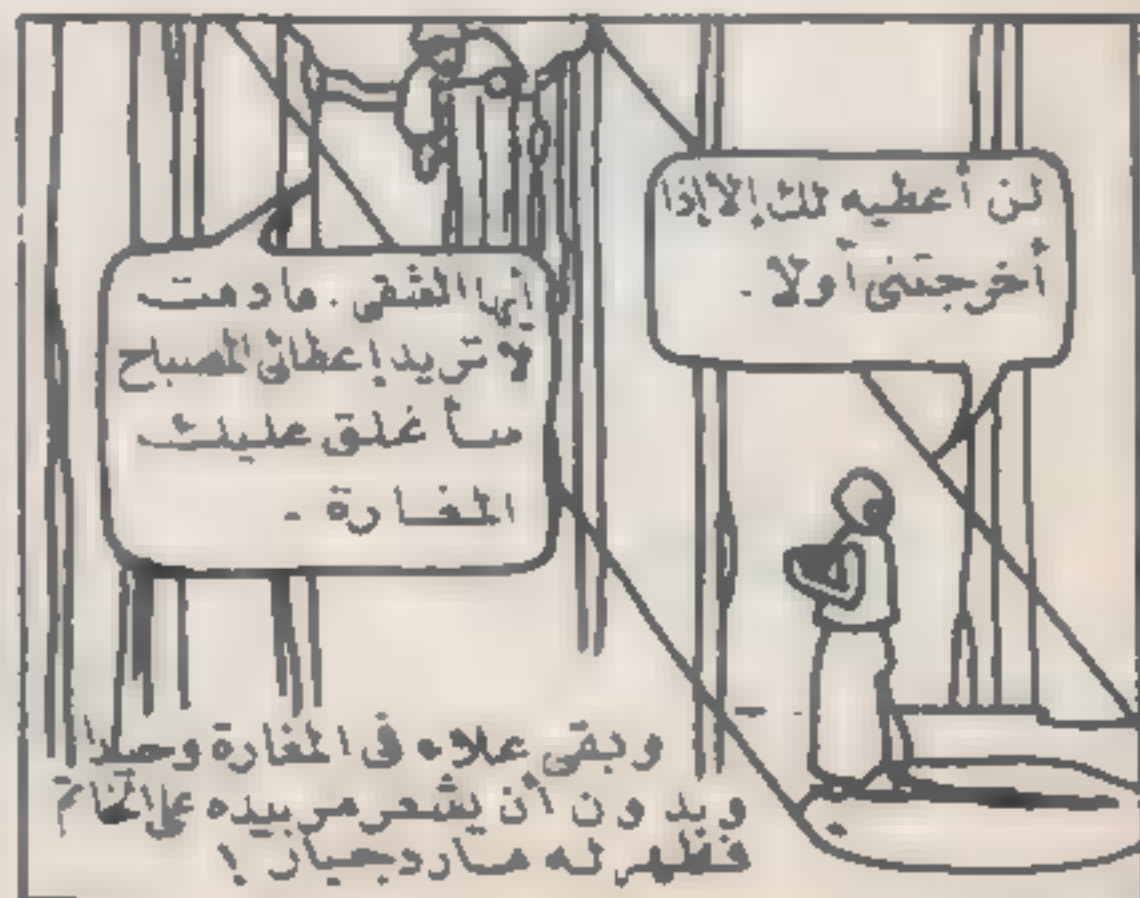 لن أعطيه لك إلا إذا
أخرجتني أولا .
أيها الشقي . مادمت
لا تريد إعطائي المصباح
سأغلق عليك
المغارة .
وبقى علاء في المغارة وحيدا
وبدون أن يشعر مر بيده على الخاتم
فظهر له مارد جبار !